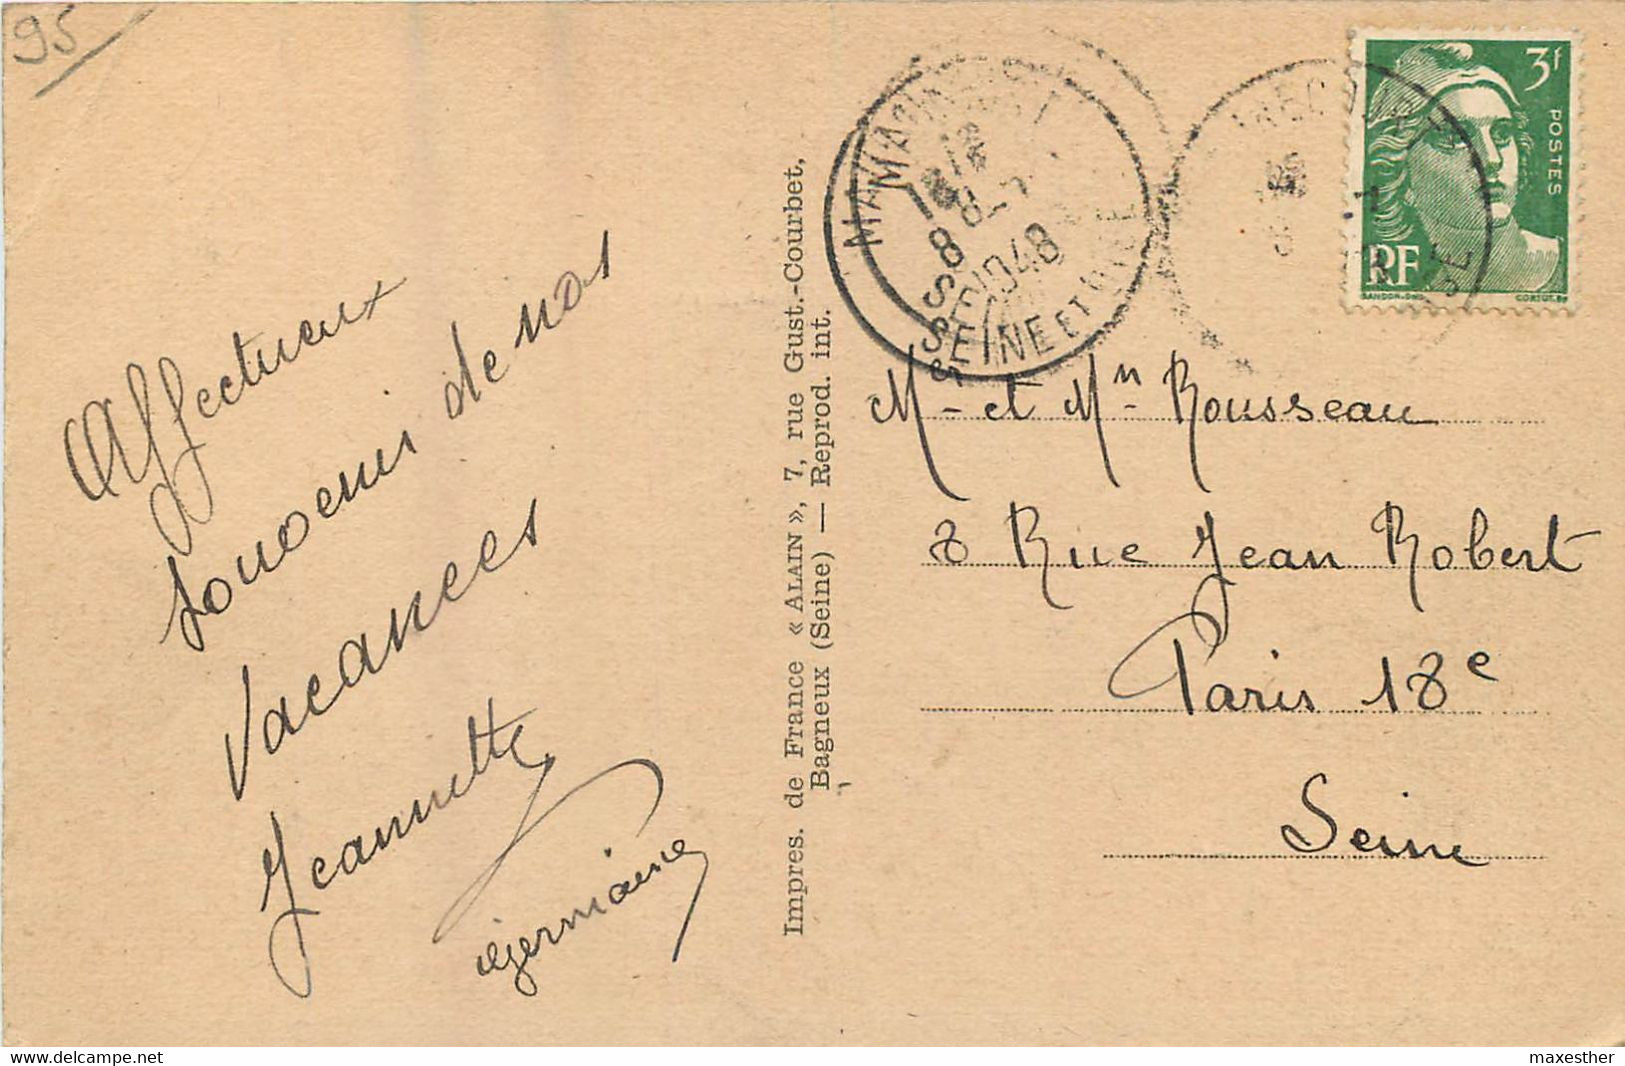 95
Affectueux
Souvenir de nos
Vacances
Jeannette
Germaine
Impres. de France « ALAIN », 7, rue Gust.-Courbet,
Bagneux (Seine) — Reprod. int.
8
1948
SEINE ET OISE
3f
POSTES
RF
M- et Mn- Rousseau
8 Rue Jean Robert
Paris 18e
Seine
delcampe.net
maxesther